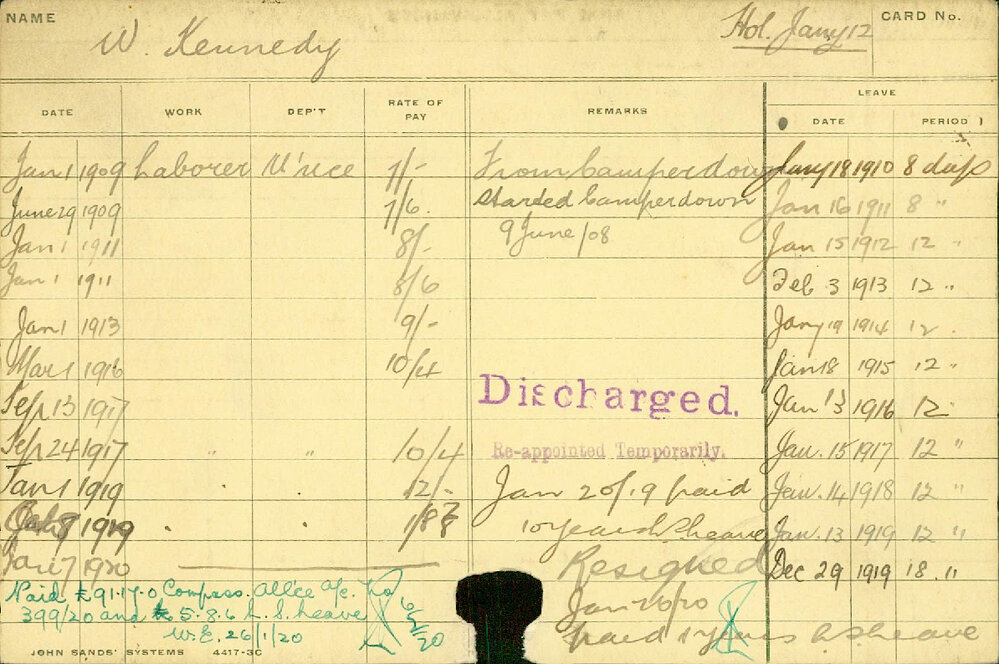 NAME W. Kennedy Hol. Jany 12 CARD No.
LEAVE
DATE WORK DEP'T RATE OF PAY REMARKS DATE PERIOD
Jan 1 1909 Laborer W'rice 7/- From Camperdown Jany 18 1910 8 days
June 29 1909 7/6 Started Camperdown Jan 16 1911 8 "
Jan 1 1911 8/- 9 June/08 Jan 15 1912 12 "
Jan 1 1911 8/6 Feb 3 1913 12 "
Jan 1 1913 9/- Jany 19 1914 12 "
Mar 1 1916 10/4 Jan 18 1915 12 "
Sep 13 1917 Discharged. Jan 13 1916 12 "
Sep 24 1917 " " 10/4 Re-appointed Temporarily. Jan. 15 1917 12 "
Jan 1 1919 " " 12/- Jan 20/19 paid Jan. 14 1918 12 "
1919 " " 10 years L S leave Jan. 13 1919 12 "
Jan 7 1920 Resigned Dec 29 1919 18 "
Paid £91-17-0 Compass. All'ce A/c. No Jan 20/20
399/20 and £5-8-6 L. S. Leave paid 1 years L S leave
W.E. 26/1/20
JOHN SANDS' SYSTEMS 4417-3C